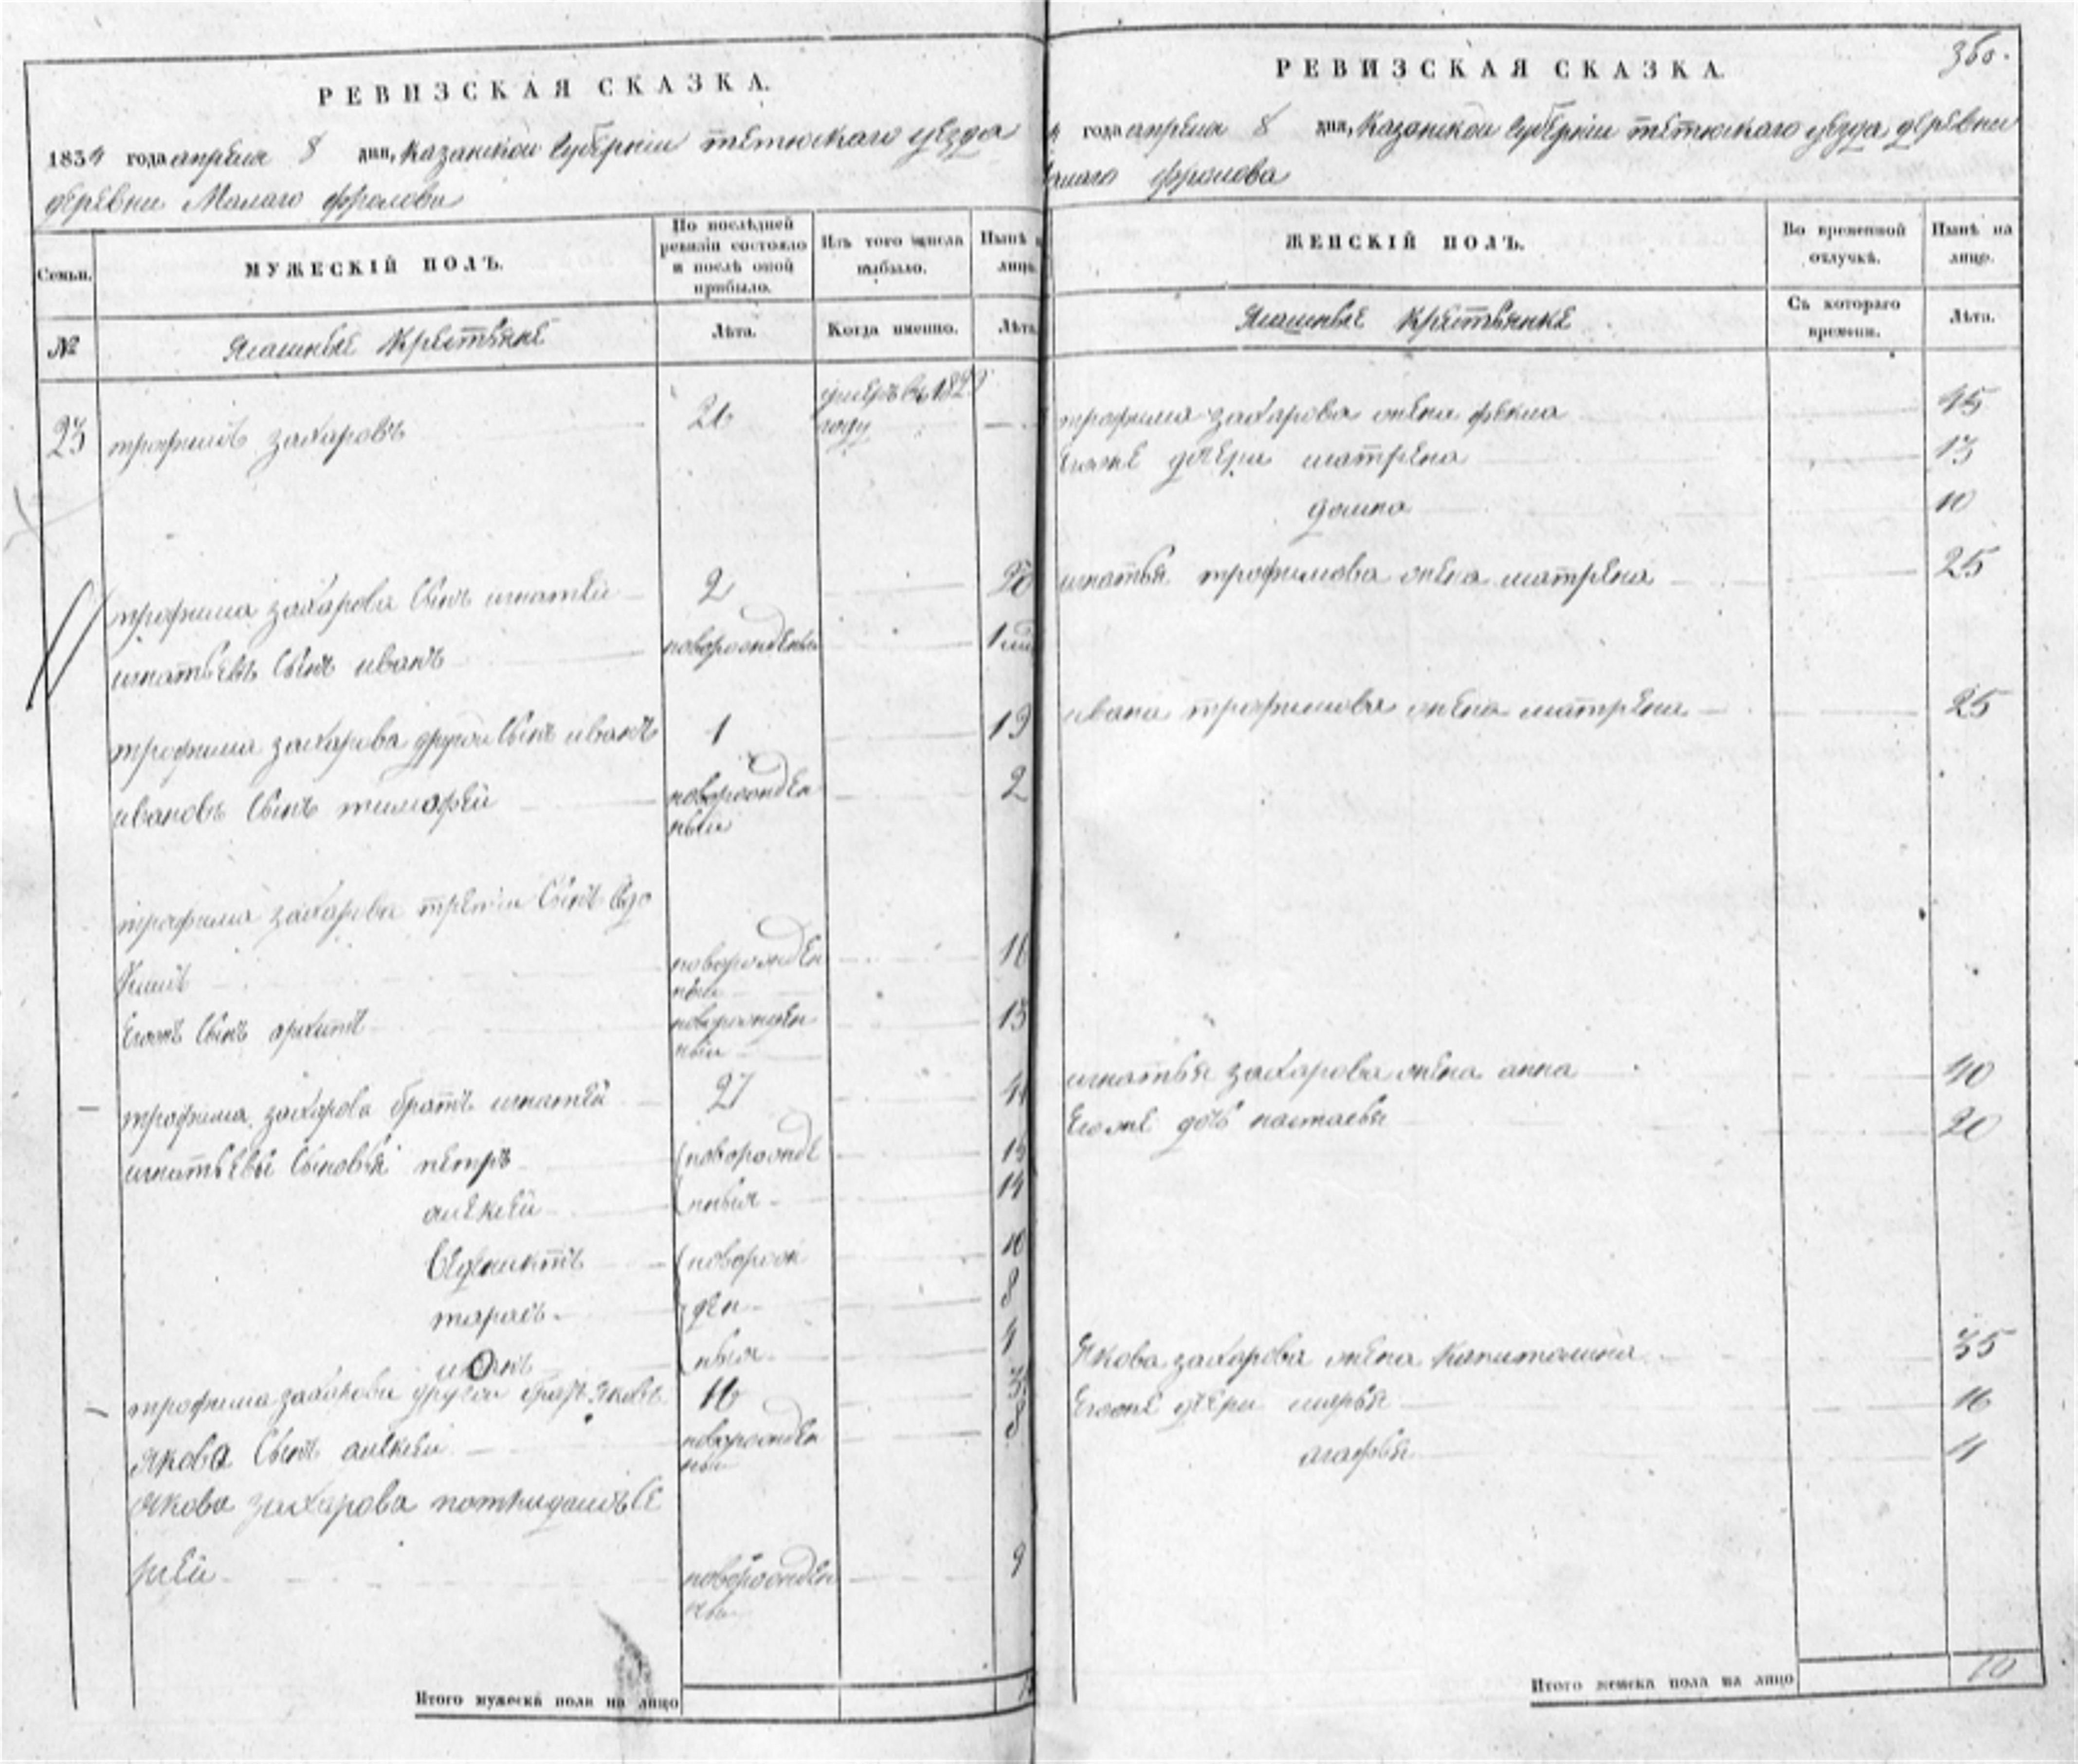 РЕВИЗСКАЯ СКАЗКА.
1834 года апреля 8 дня, Казанской Губернiи тетюскаго уезда
деревни Малаго фролова
Семьи.
МУЖЕСКІЙ ПОЛЪ.
По послѣдней ревизіи состояло и послѣ оной прибыло.
Изъ того числа выбыло.
Нынѣ на лицо.
№
Ясашные Крестьяне
Лѣта.
Когда именно.
Лѣта
23 трофимъ захаровъ 26 умеръ в 182 году
трофима захарова сынъ игнатей 2
игнатьевъ сынъ иванъ новорожденны 1
трофима захарова другой сынъ иванъ 1 19
ивановъ сынъ тимофей новорожден 2
ный
трофима захарова третiй сынъ
новорожден 16
ный
Егожъ сынъ архипъ новорожден 13
ный
трофима захарова братъ игнатей 27
игнатьевы сыновья петръ новорожде
алексей нныя 14
новорож 10
тарасъ ден 8
иванъ ныя 4
трофима захарова другой братъ яковъ 16
якова сынъ алексей новорожден 8
ны
якова захарова поткидышъ се
ргей новорожден 9
ны
Итого мужеска пола на лицо
РЕВИЗСКАЯ СКАЗКА.
360.
года апреля 8 дня, Казанской Губернiи тетюскаго уезда деревни
фролова
ЖЕНСКІЙ ПОЛЪ.
Во временной отлучкѣ.
Нынѣ на лицо.
Ясашные Крестьянке
Съ котораго времени.
Лѣта.
трофима захарова жена фекла 45
Егоже дочери матрена 13
домна 10
игнатья трофимова жена матрена 25
ивана трофимова жена матрена 25
игнатья захарова жена анна 40
Егоже дочь настасья 20
Якова захарова жена капитолина 35
Егоже дчери марья 16
агафья
Итого женска пола на лицо 10